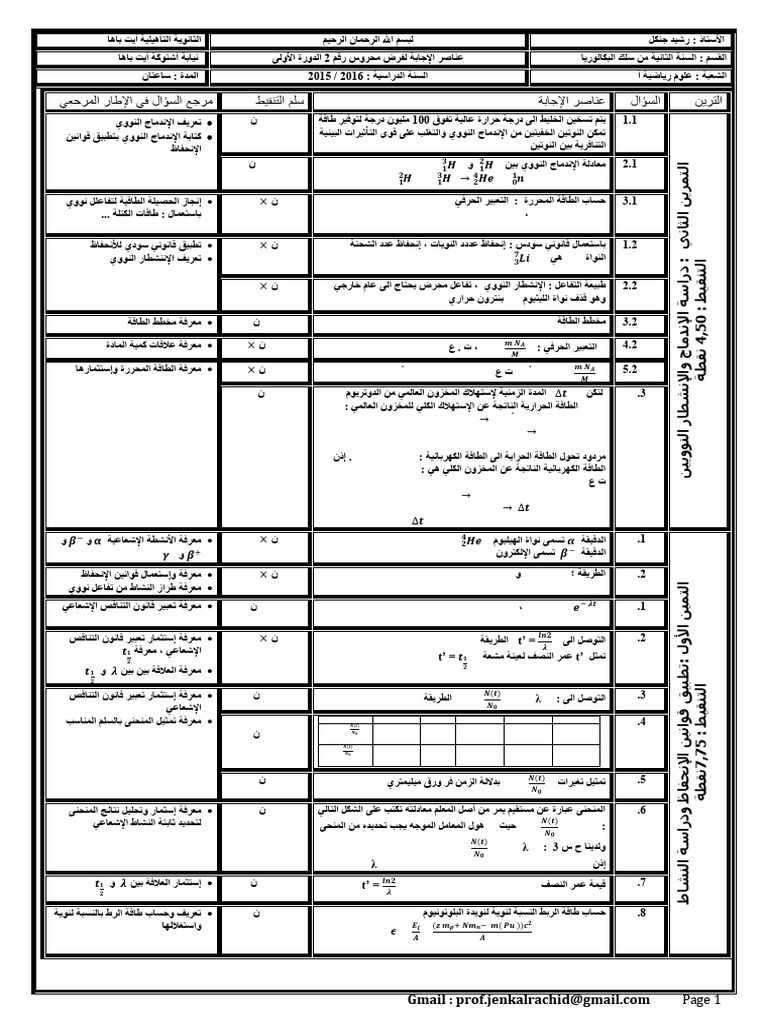 الأستاذ : رشيد جنكل
لبسم الله الرحمان الرحيم
الثانوية التأهيلية أيت باها
القسم : السنة الثانية من سلك البكالوريا
عناصر الإجابة لفرض محروس رقم 2 الدورة الأولى
نيابة أشتوكة أيت باها
الشعبة : علوم رياضية أ
السنة الدراسية : 2016 / 2015
المدة : ساعتان
الترين
السؤال
عناصر الإجابة
سلم التنقيط
مرجع السؤال في الإطار المرجعي
التمرين الثاني : دراسة الإندماج والإنشطار النوويين
التنقيط : 4,50 نقطة
1.1
يتم تسخين الخليط الى درجة حرارة عالية تفوق 100 مليون درجة لتوفير طاقة
تمكن النوتين الخفيتين من الإندماج النووي والتغلب على قوى التأثيرات البينية
التنافرية بين النوتين
ن
• تعريف الإندماج النووي
• كتابة الإندماج النووي بتطبيق قوانين
الإنحفاظ
2.1
معادلة الإندماج النووي بين ²₁H و ³₁H
²₁H ³₁H → ⁴₂He ¹₀n
ن
3.1
حساب الطاقة المحررة : التعبير الحرفي
،
ن ×
• إنجاز الحصيلة الطاقية لتفاعلل نووي
باستعمال : طاقات الكتلة ...
1.2
باستعمال قانوني سودس : إنحفاظ عددد النويات ، إنحفاظ عدد الشحنة
النواة هي ⁷₃Li
ن ×
• تطبيق قانوني سودي للأنحفاظ
• تعريف الإنشطار النووي
2.2
طبيعة التفاعل : الإنشطار النووي ، تفاعل محرض يحتاج الى عام خارجي
وهو قذف نواة الليتيوم بنترون حراري
ن ×
3.2
مخطط الطاقة
ن
• معرفة مخطط الطاقة
4.2
التعبير الحرفي : m N_A / M ، ت . ع
ن ×
• معرفة علاقات كمية المادة
5.2
m N_A / M ت ع
ن ×
• معرفة الطاقة المحررة وإستثمارها
3.
لتكن Δt المدة الزمنية لإستهلاك المخزون العالمي من الدوتريوم
الطاقة الحرارية الناتجة عن الإستهلاك الكلي للمخزون العالمي :
→
→
مردود تحول الطاقة الحراية الى الطاقة الكهربائية : . إذن
الطاقة الكهربائية الناتجة عن المخزون الكلي هي :
ت ع
→
→ Δt
Δt
ن
التمين الأول :تطبيق قوانين الإنحفاظ ودراسة النشاط
التنقيط : 7,75نقطة
1.
الدقيقة α تسمى نواة الهيليوم ⁴₂He
الدقيقة β⁻ تسمى الإلكترون
ن ×
• معرفة الأنشطة الإشعاعية α و β⁻ و
β⁺ و γ
2.
الطريقة : و
ن ×
• معرفة وإستعمال قوانين الإنحفاظ
• معرفة طراز النشاط من تفاعل نووي
1.
e^(−λt) ،
ن
• معرفة تعبير قانون التناقص الإشعاعي
2.
التوصل الى t' = ln2/λ الطريقة
تمثل t' عمر النصف لعينة مشعة t' = t_(1/2)
ن ×
• معرفة إستثمار تعبير قانون التناقص
الإشعاعي ، معرفة t_(1/2)
• معرفة العلاقة بين بين λ و t_(1/2)
3.
التوصل الى : λ N(t)/N₀ الطريقة
ن
• معرفة إستثمار تعبير قانون التناقص
الإشعاعي
• معرفة تمثيل المنحنى بالسلم المناسب
4.
N(t)/N₀
N(t)/N₀
ن
5.
تمثيل تغيرات N(t)/N₀ بدلالة الزمن فر ورق ميليمتري
ن
6.
المنحنى عبارة عن مستقيم يمر من أصل المعلم معادلته تكتب على الشكل التالي
: N(t)/N₀ حيث هول المعامل الموجه يجب تحديده من المنحى
ولدينا ح س 3 : λ N(t)/N₀
إذن λ
ن
• معرفة إستثمار وتحليل نتائج المنحنى
لتحديد ثابتة النشاط الإشعاعي
7.
قيمة عمر النصف t' = ln2/λ
ن
• إستثمار العلاقة بين λ و t_(1/2)
8.
حساب طاقة الربط النسبة لنوية لنويدة البلوتونيوم
ϵ E_l/A (z m_p + N m_n − m( Pu ))c² / A
ن
• تعريف وحساب طاقة الرط بالنسبة لنوية
واستغلالها
Gmail : prof.jenkalrachid@gmail.com
Page 1